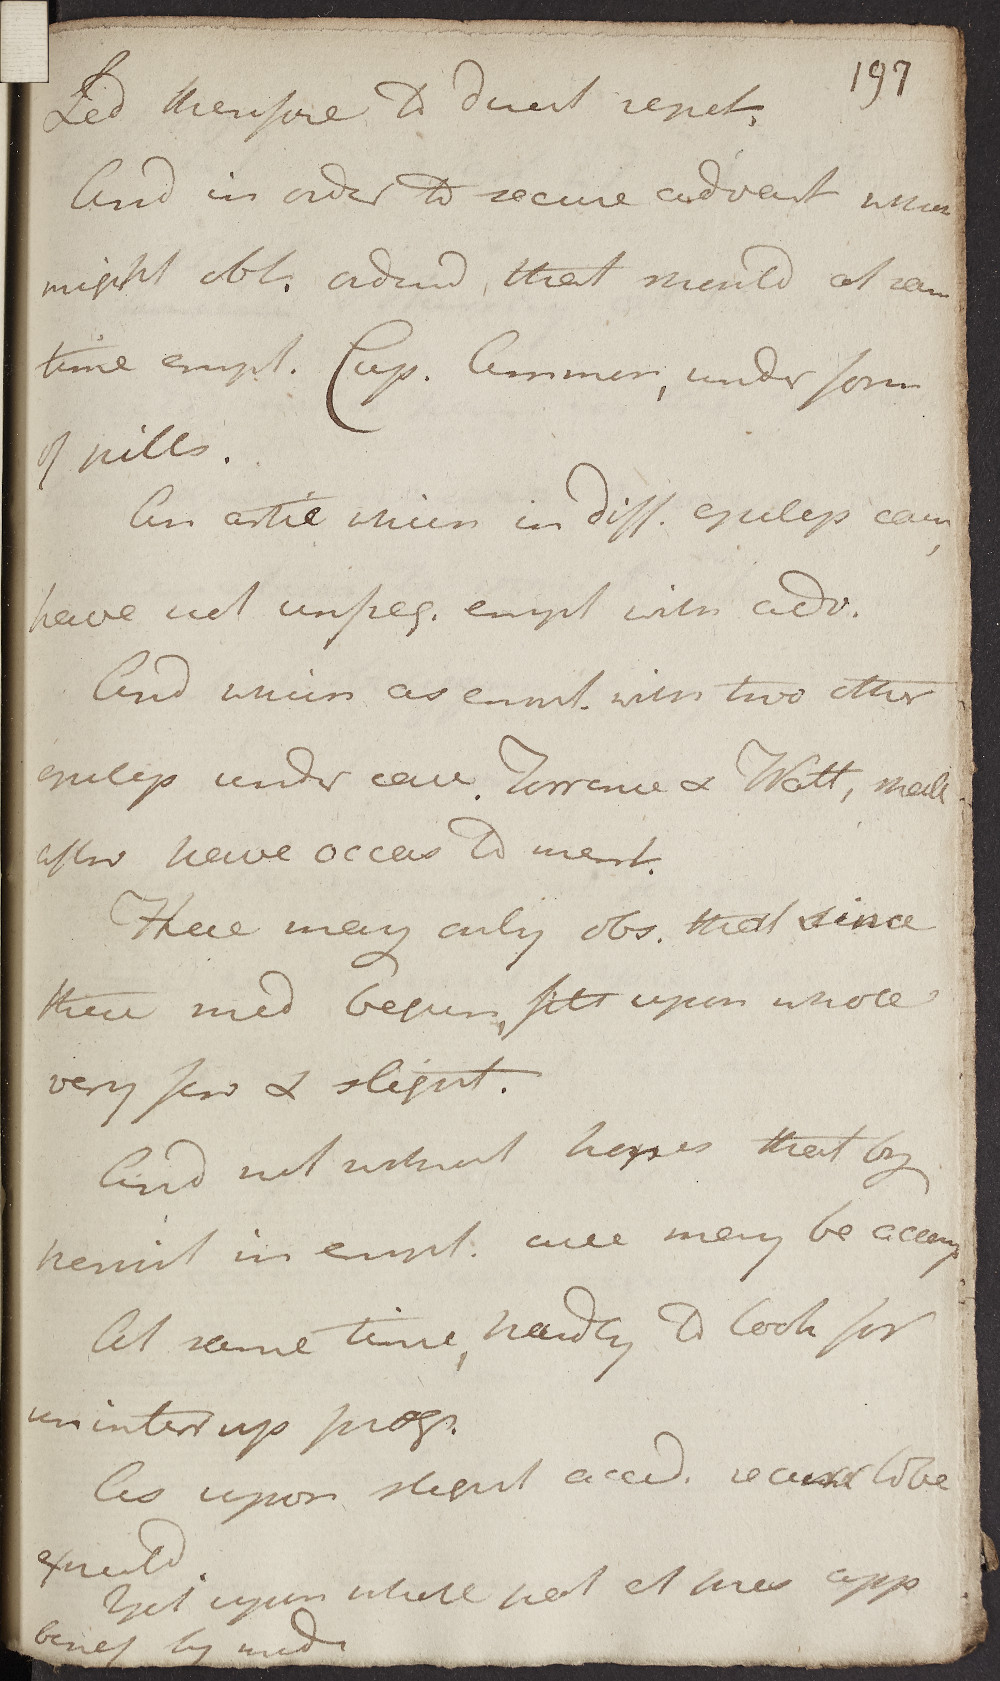 197
Led therefore to direct repet.
And in order to secure advant which
might obt. ordered, that should at same
time empl. Cup. Ammon, under form
of pills.
An article which in diff. epilep cases,
have not unfreq. empl with adv.
And which as empl. with two other
epilep under care. Torrence & Watt, shall
after have occas to ment.
Here may only obs. that since
these med begun, fits upon whole
very few & slight.
And not without hopes that by
persist in empl. cure may be accomp
At same time, hardly to look for
uninterrup progr.
As upon slight accid. recurr to be
expected.
Yet upon whole pat at pres app
benef by med.